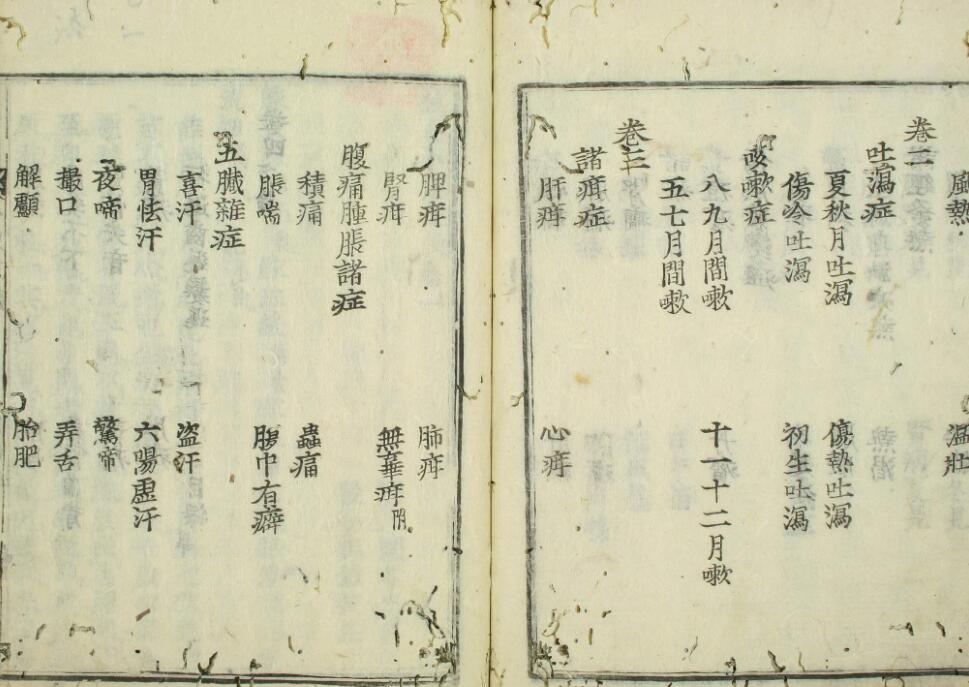 風熱 温壮
卷二
吐瀉症
夏秋月吐瀉 傷熱吐瀉
傷冷吐瀉 初生吐瀉
咳嗽症
八九月間嗽 十一十二月嗽
五七月間嗽
卷三
諸疳症
肝疳 心疳
脾疳 肺疳
腎疳 無辜疳
腹痛腫脹諸症
積痛 蟲痛
脹喘 腹中有癖
五臟雜症
喜汗 盜汗
胃怯汗 六陽虛汗
夜啼 驚啼
撮口 弄舌
解顱 胎肥